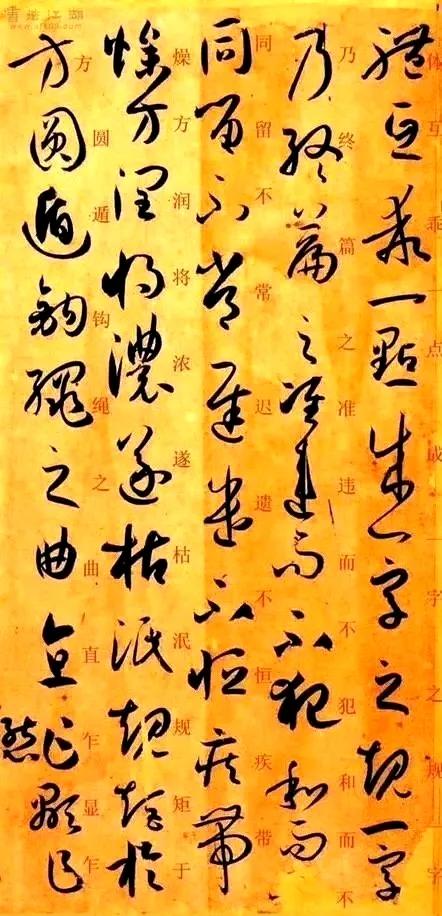 體互乖一點成一字之規一字
体互乖一点成一字之规一字
乃終篇之準違而不犯和而
乃终篇之准违而不犯和而不
同留不常遲遣不恒疾帶
同留不常迟遣不恒疾带
燥方潤將濃遂枯泯規矩於
燥方润将浓遂枯泯规矩于
方圓遁鉤繩之曲直乍顯乍
方圆遁钩绳之曲直乍显乍